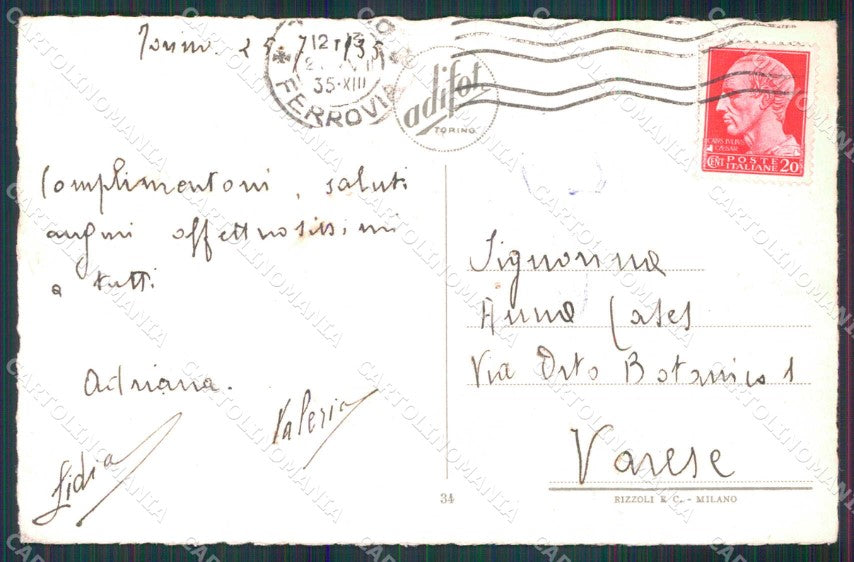 Torino 25.
12
35-XIII
FERROVIA
adifot
TORINO
CAIVS IVLIVS
CAESAR
CENT POSTE ITALIANE 20
Complimentoni, saluti
auguri affettuosissimi
a tutti
Adriana.
Valeria
Lidia
Signorina
Anna Cases
Via Orto Botanico 1
Varese
34
RIZZOLI E C. - MILANO
CARTOLINOMANIA